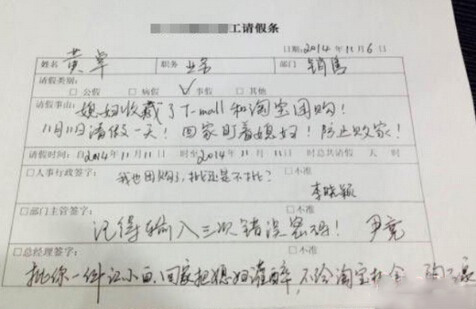 工请假条
日期:2014年11月6日
姓名 黄卓 职务 业务 部门 销售
请假类别:
□公假 □病假 ☑事假 □其他
请假事由: 媳妇收藏了T-mall和淘宝团购!
11月11日请假一天! 回家盯着媳妇! 防止败家!
请假时间:自2014年11月11日 时至2014年11月11日 时总共请假 天 时
□人事行政签字: □不准
我也团购了,批还是不批?
李晓颖
□部门主管签字: □不准
记得输入三次错误密码! 尹竞
□总经理签字: □不准
批你一件江小白,回家把媳妇灌醉,不给淘宝扑金